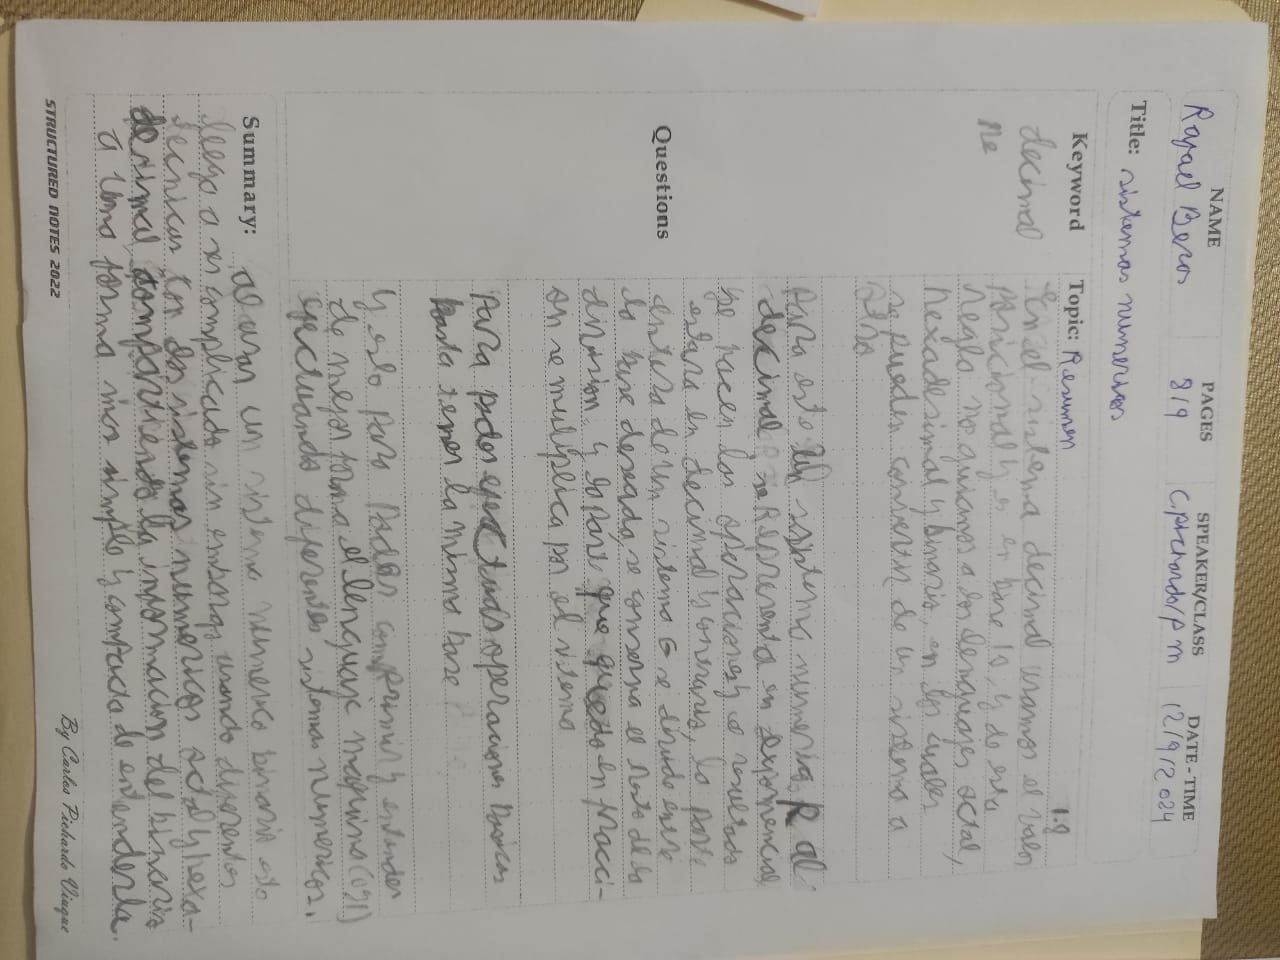 NAME PAGES SPEAKER/CLASS DATE - TIME
Rafael Bero 8/9 C.pichardo/pm 12/9/2024
Title: sistemas numericos
Keyword Topic: Resumen 1.8
decimal
Ne
en el sistema decimal usamos el valor
posicional y es en base 10, y de esta
regla no guiamos a los lenguajes octal,
hexadesimal y binario, en los cuales
se pueden convertir de un sistema a
otro
Para este sistema numerico R al
decimal se Representa en exponencial
se hacen las operaciones y el resultado
estara en decimal y conversis, la parte
entera de un sistema es divide entre
la base deseada se conserva el resto de la
division, y la parte que queda en fracci-
on se multiplica por el sistema
Para poder efectuar operaciones basicas
basta tener la misma base
y esto para Poder comprimir y entender
de mejor forma el lenguaje maquina (0y1)
efectuando diferentes sistemas numericos.
Questions
Summary: al usar un sistema numerico binario esto
llega a ser complicado sin embargo, usando diferentes
tecnicas con los sistemas numericos octal y hexa-
decimal, compartiendo la informacion del binario
a una forma mas simple y compacta de entenderla.
STRUCTURED NOTES 2022 By Carlos Pichardo Viuque